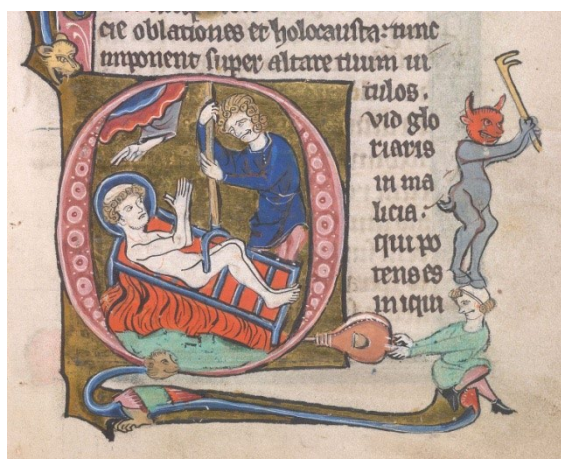 cie oblationes et holocausta: tunc
imponent super altare tuum ui
tulos.
Qvid glo
riaris
in ma
licia:
qui po
tens es
iniqui